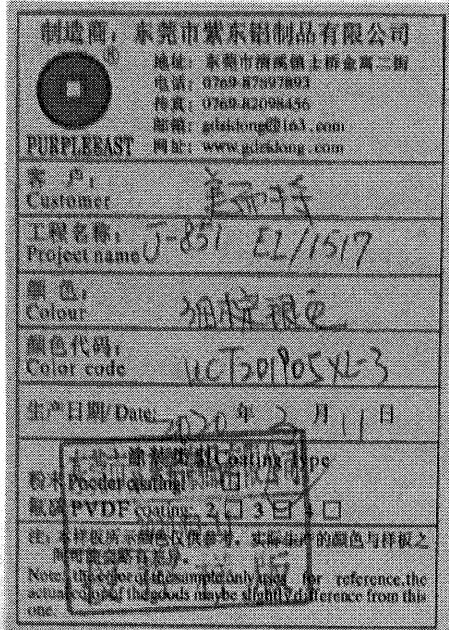 制造商：东莞市紫东铝制品有限公司
®
地址：东莞市清溪镇土桥金富二街
电话：0769-87897893
传真：0769-82098456
邮箱：gdzklong@163.com
PURPLEEAST 网址：www.gdzklong.com
客 户：
Customer
工程名称：
Project name J-851 EL/1517
颜 色：
Colour 银色
颜色代码：
Color code UCT201905XL-3
生产日期/Date: 2020 年 2 月 11 日
涂装类型Coating Type
粉末Powder coating: □
氟碳PVDF coating: 2 □ 3 □ 4 □
注：本样板所示颜色仅供参考，实际生产的颜色与样板之
间可能会略有差异。
Note: the color of the sample only uses for reference,the
actual color of the goods maybe slightly difference from this
one.